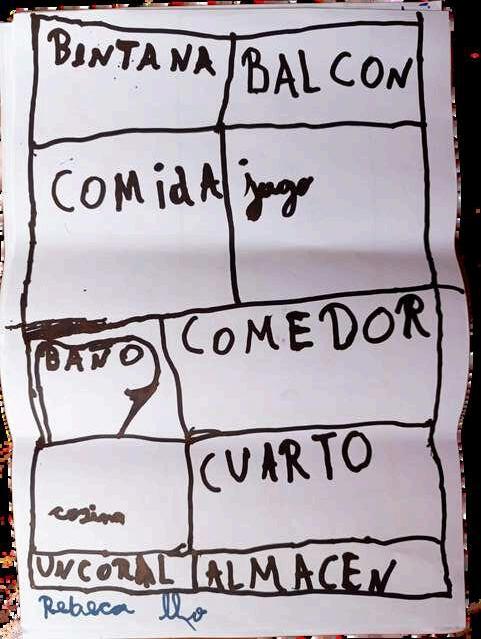 BENTANA BALCON
COMidA jugo
BAÑO COMEDOR
CUARTO
cosina
UN CORAL ALMACEN
Rebeca